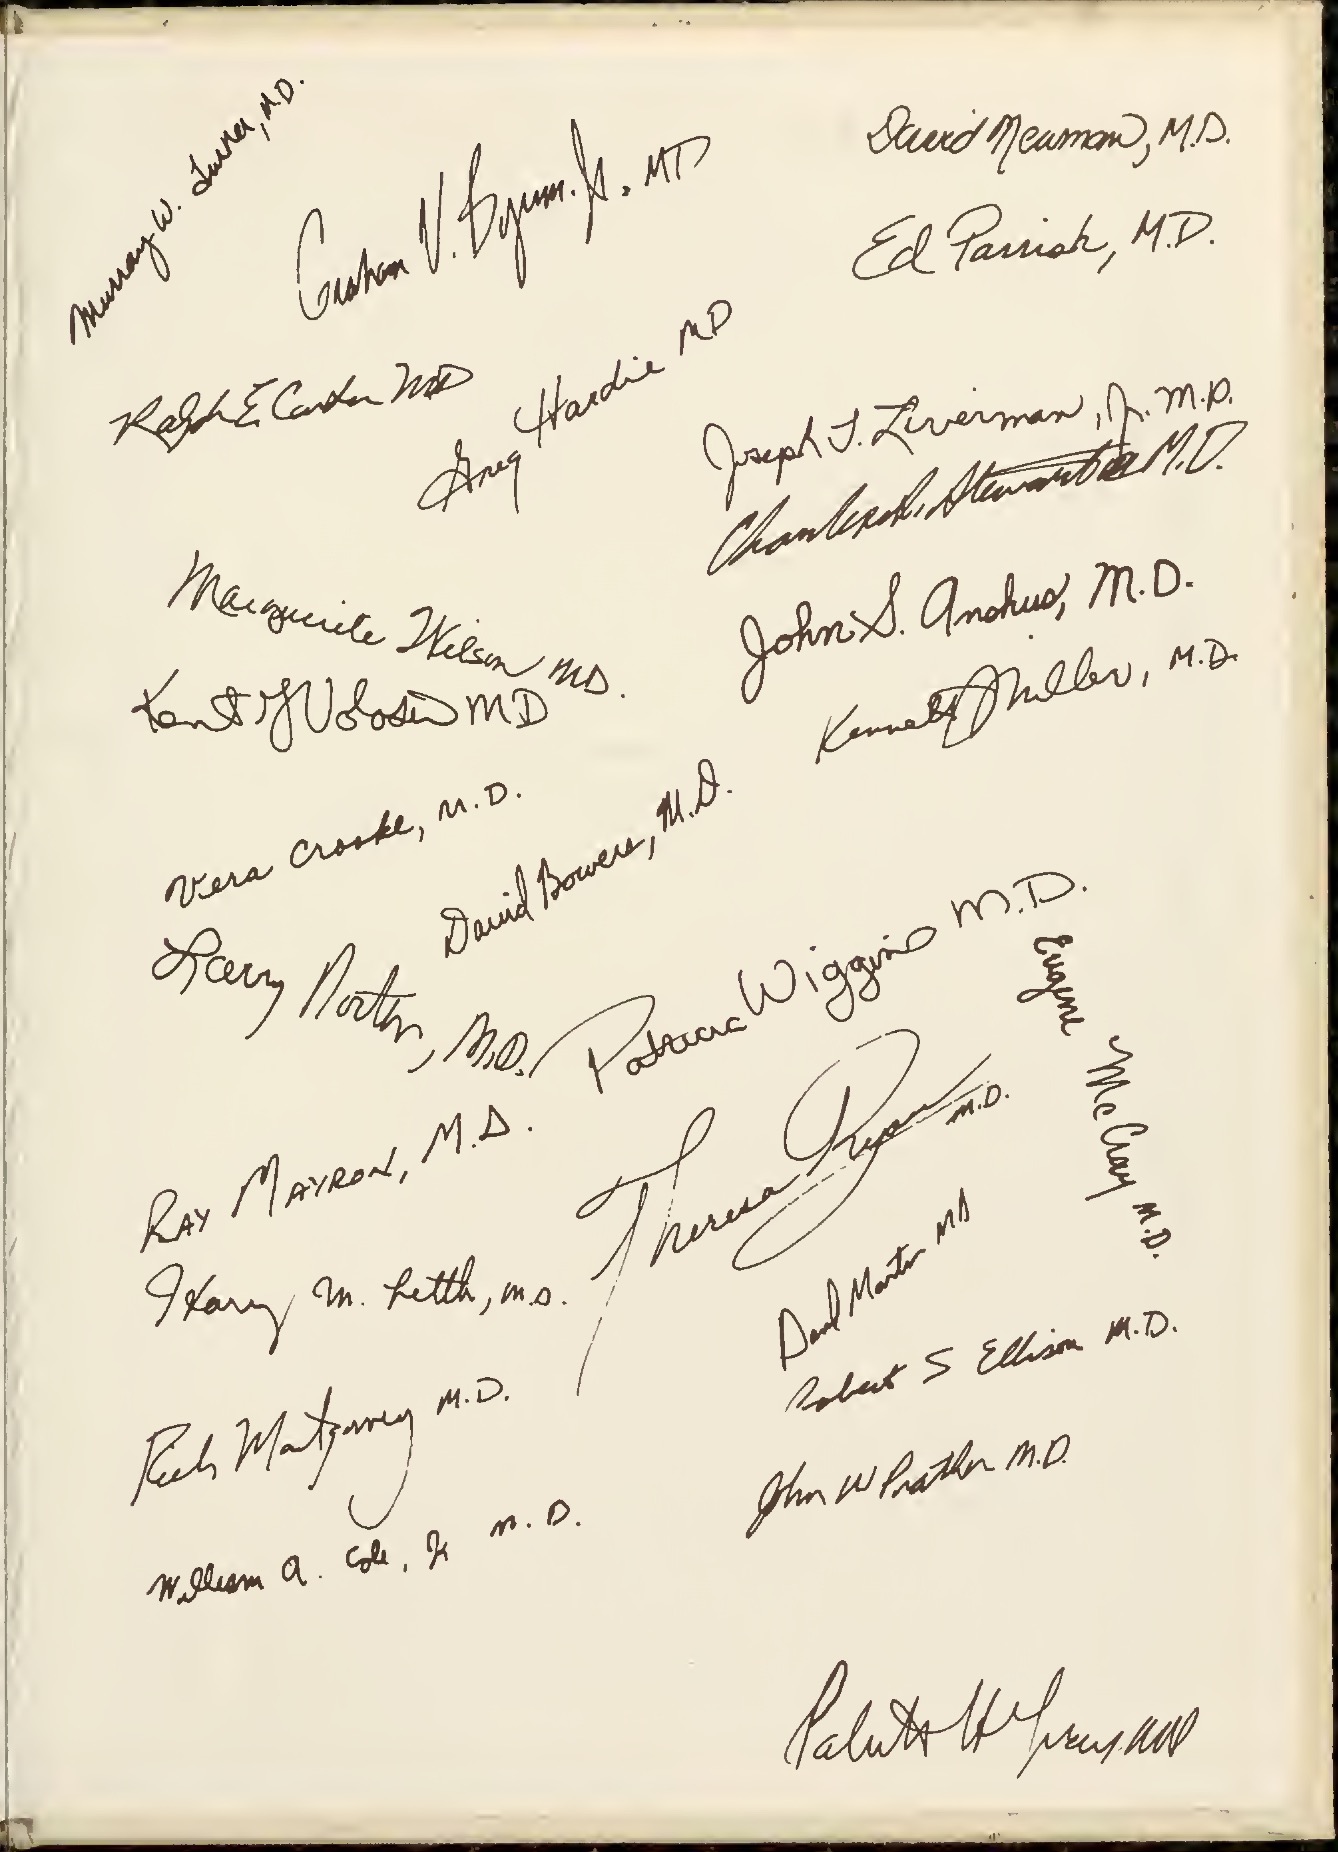 Murray W. Turner, M.D.
Graham V. Byrum. Jr. MD
David Newman, M.D.
Ed Parrish, M.D.
Ralph E. Carter MD
Greg Hardie MD
Joseph T. Liverman, Jr. M.D.
Charles R. Stewart M.D.
Marguerite Wilson MD.
John S. Andrus, M.D.
Kent MD
Kenneth J Miller, M.D.
Vera Crooke, M.D.
David Bowers, M.D.
Larry Norton, M.D.
Patricia Wiggins M.D.
Eugene McCray M.D.
Ray Mayron, M.D.
Theresa Ryan M.D.
Harry M. Lettk, M.D.
Martin MD
Robert S Ellison M.D.
Rich Montgomery M.D.
John W Prather M.D.
William A. Cole, Jr M.D.
H MD